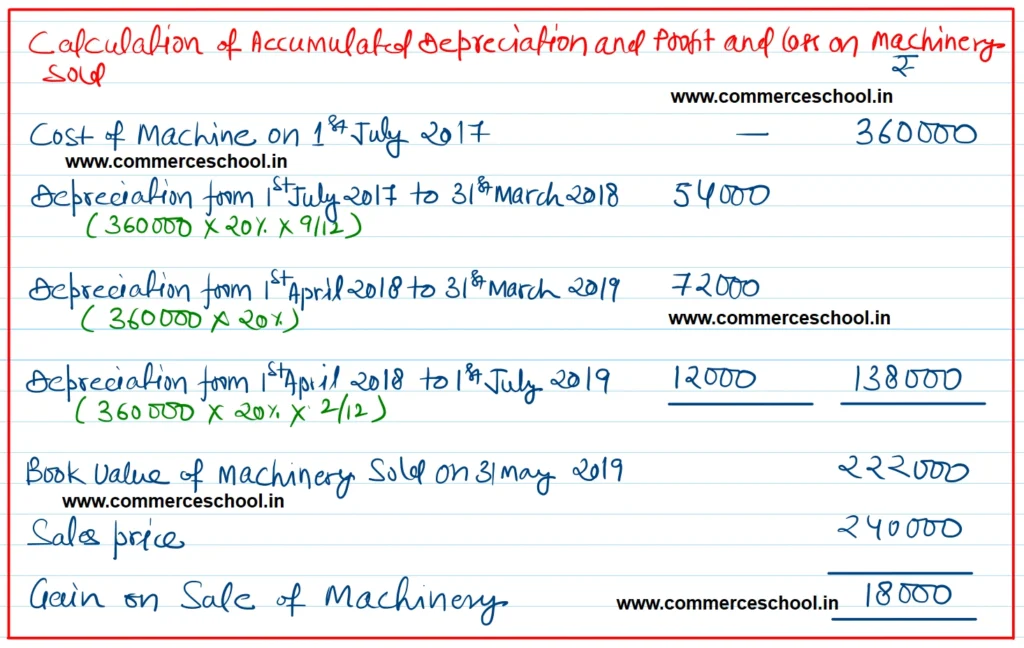 Calculation of Accumulated Depreciation and Profit and Loss on Machinery
Sold
₹
www.commerceschool.in
Cost of Machine on 1st July 2017 — 360000
www.commerceschool.in
Depreciation from 1st July 2017 to 31st March 2018 54000
(360000 × 20% × 9/12)
Depreciation from 1st April 2018 to 31st March 2019 72000
(360000 × 20%)
www.commerceschool.in
Depreciation from 1st April 2018 to 1st July 2019 12000 138000
(360000 × 20% × 2/12)
Book Value of Machinery Sold on 31 may 2019 222000
www.commerceschool.in
Sales price 240000
Gain on Sale of Machinery 18000
www.commerceschool.in